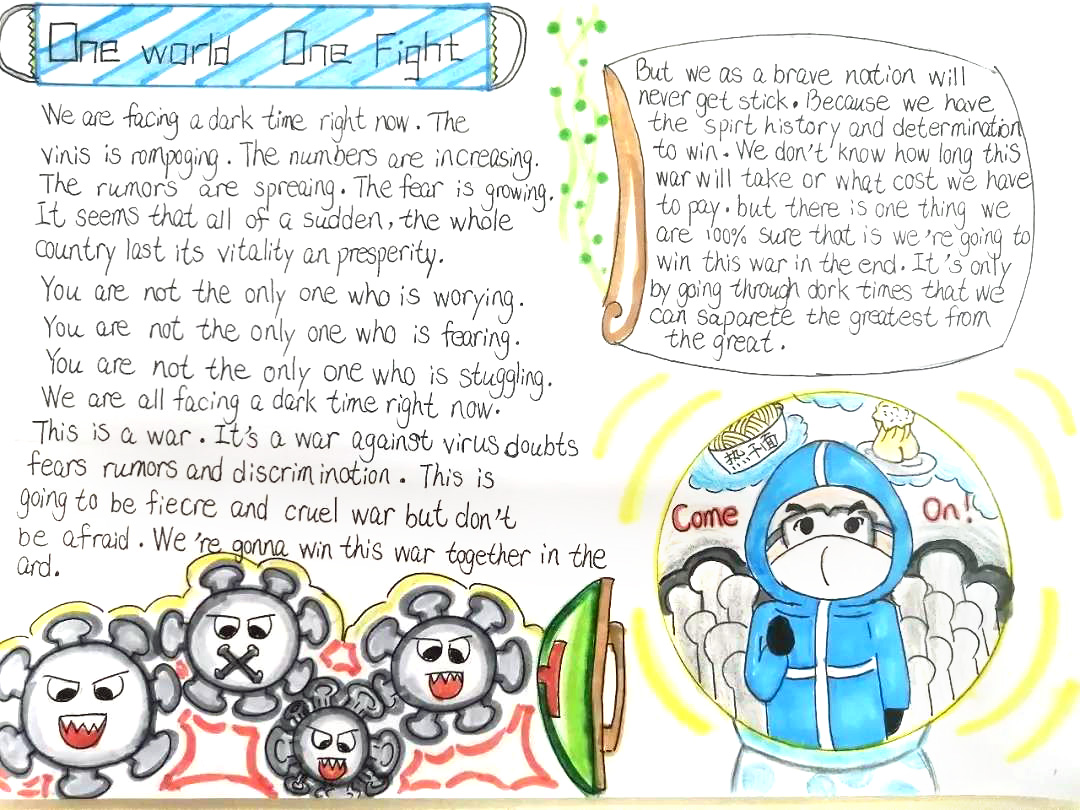 One world One Fight
We are facing a dark time right now. The
vinis is rompoging. The numbers are increasing.
The rumors are spreaing. The fear is growing.
It seems that all of a sudden, the whole
country last its vitality an presperity.
You are not the only one who is worying.
You are not the only one who is fearing.
You are not the only one who is stuggling.
We are all facing a dark time right now.
This is a war. It's a war against virus doubts
fears rumors and discrimination. This is
going to be fiecre and cruel war but don't
be afraid. We're gonna win this war together in the
ard.
But we as a brave nation will
never get stick. Because we have
the spirt history and determination
to win. We don't know how long this
war will take or what cost we have
to pay. but there is one thing we
are 100% sure that is we're going to
win this war in the end. It's only
by going through dork times that we
can saparete the greatest from
the great.
热干面
Come On!